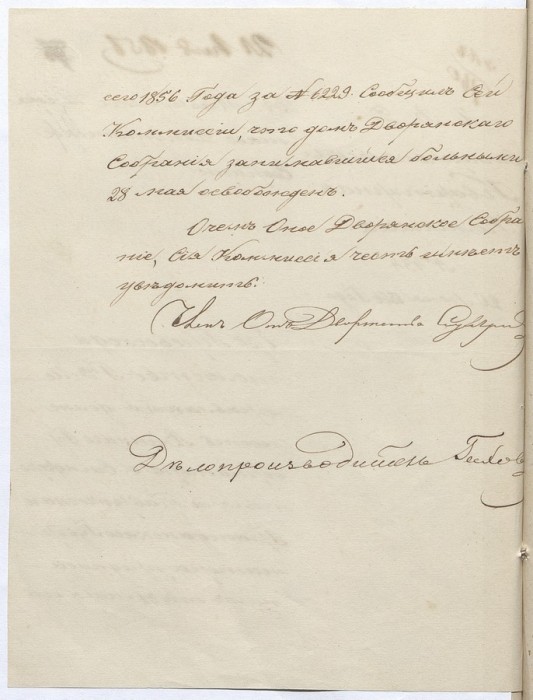 сего 1856 Года за № 1229. Сообщилъ Сей
Коммиссіи, что домъ Дворянскаго
Собранія занимавшійся больными
28 мая освобожденъ.
Очемъ Оное Дворянское Собра
ніе, Сія Коммиссія честь имѣетъ
увѣдомить.
Членъ Отъ Дворянства
Дѣлопроизводитель